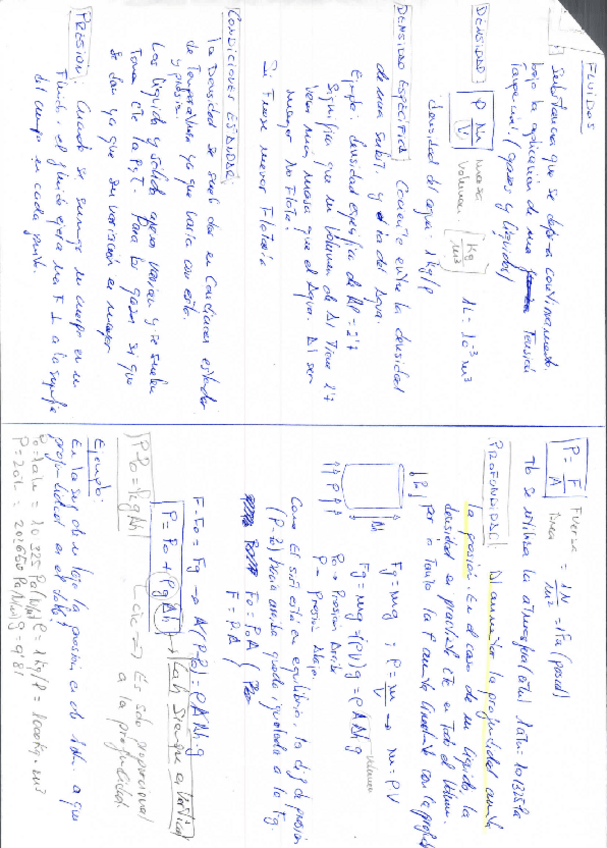 FLUIDOS
Substancia que se deforma continuamente
bajo la aplicación de una Tensión
(gases y líquidos)
DENSIDAD: ρ = m/V masa Volumen [kg/m³] 1L = 10⁻³ m³
densidad del agua = 1 kg/l
DENSIDAD ESPECÍFICA Cociente entre la densidad
de una subst. y la del Agua.
Ejemplo: densidad específica de Al = 2'7
Significa que un Volumen de Al Tiene 2'7
veces más masa que el Agua. Al ser
mayor No Flota!
Si Fuese menor Flotaría
CONDICIONES ESTANDAR
la Densidad se suele dar en Condiciones estandar
de Temperatura y presión ya que varía con esta.
Los líquidos y sólidos apenas varían y se suelen
Tomar CTE la P y T. Para los gases sí que
se dan ya que su variación es mayor
PRESION: Cuando se sumerge un cuerpo en un
Fluido, el fluido ejerce una F ⊥ a la superficie
del cuerpo en cada punto.
P = F/A Fuerza Area = 1N/m² = 1Pa (pascal)
Tb se utiliza la atmosfera (atm) 1atm = 101325Pa
PROFUNDIDAD Al aumentar la profundidad aumenta
la presión. En el caso de un líquido la
densidad es practicmt CTE en Todo el Volumen.
por lo Tanto la P aumenta linealmente con la profund.
P₀
Δh
P
Fg = mg ; ρ = m/V → m = ρV
Fg = mg = (ρV)g = ρAΔhg
Volumen
P₀ → Presion Arriba
P → Presion Abajo
Como El sist está en equilibrio, la dif de presión
(P-P₀) hacia arriba queda igualada a la Fg.
F₀ = P₀A
F = PA
F-F₀ = Fg → A(P-P₀) = ρAΔh·g
P = P₀ + ρgΔh → (Δh siempre en Vertical)
P-P₀ = ρgΔh
CTE → Es solo proporcional
a la profundidad
Ejemplo:
En la sup. de un lago la presión es de 1atm. a que
profundidad es el doble?
P₀ = 1atm = 101325 Pa (N/m²) ρ = 1 kg/l = 1000kg·m³
P = 2atm = 202650 Pa (N/m²) g = 9'81